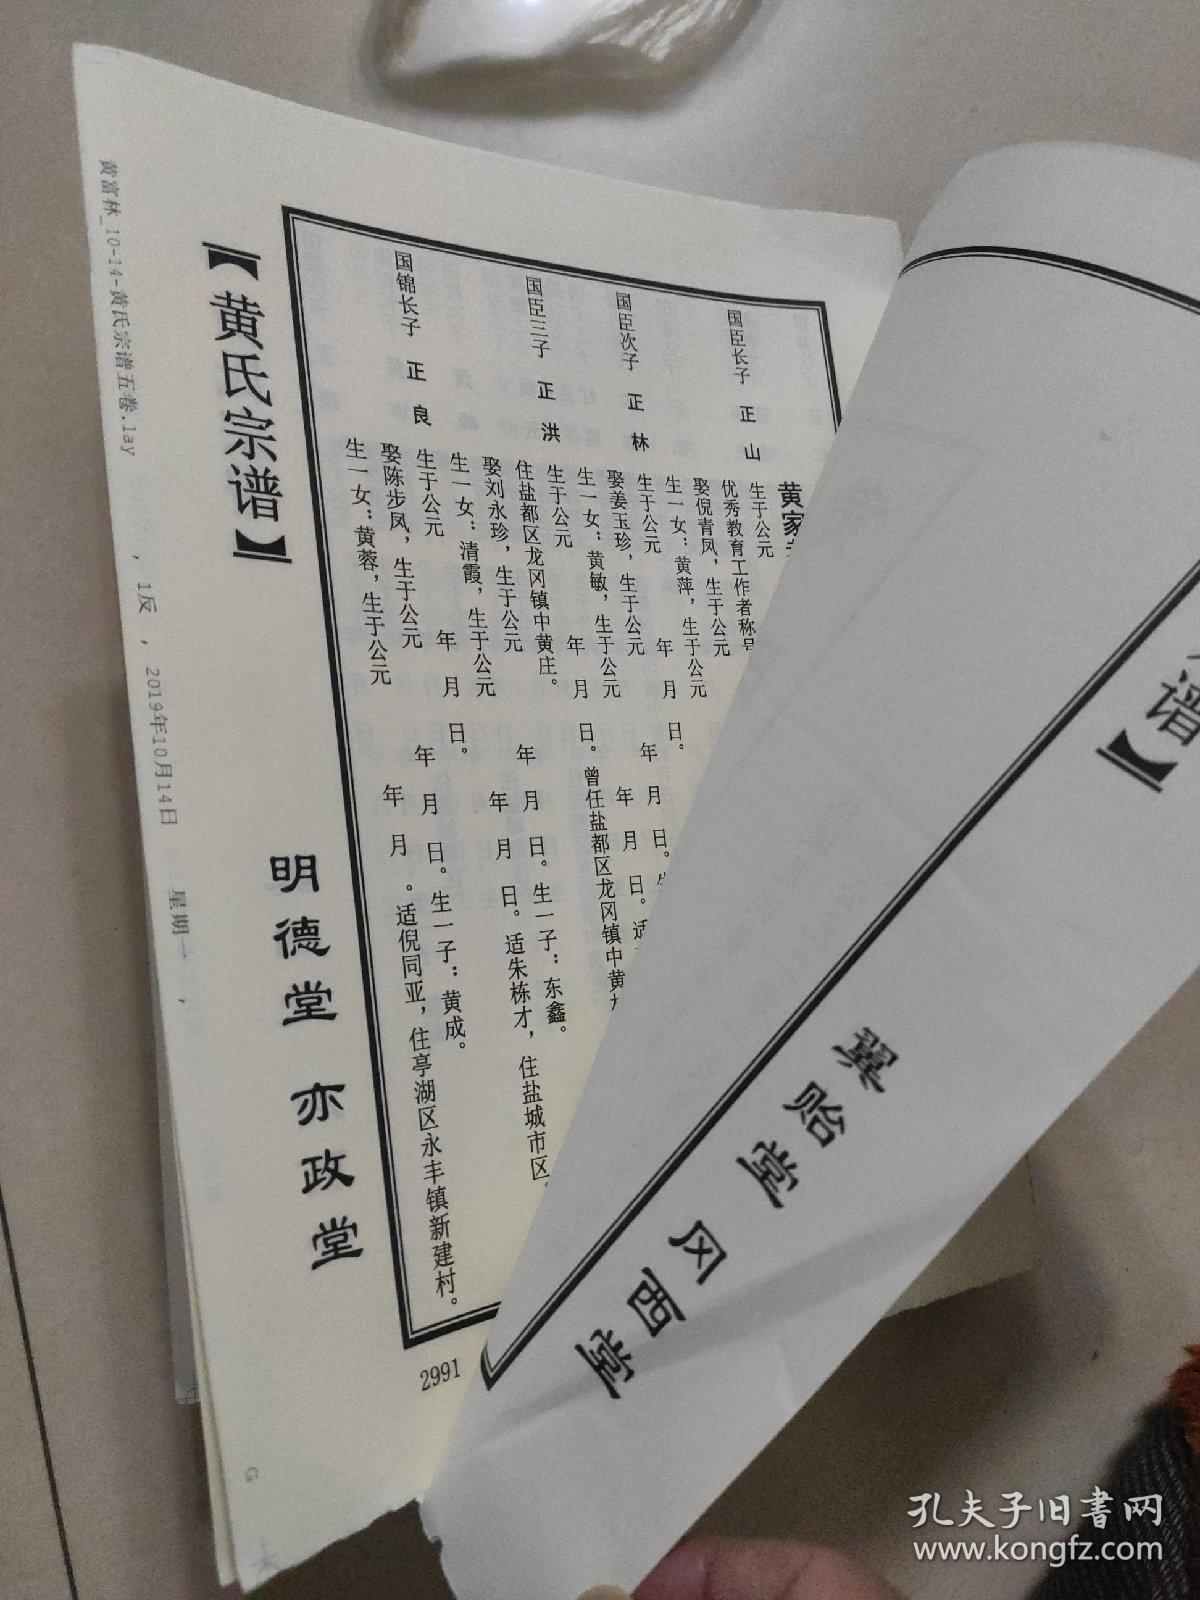 黄家
国臣长子 正山 生于公元
优秀教育工作者称号
娶倪青凤，生于公元 年 月 日。
生一女：黄萍，生于公元 年 月 日。适
国臣次子 正林 生于公元 年 月 日。曾任盐都区龙冈镇中黄
娶姜玉珍，生于公元
生一女：黄敏，生于公元
国臣三子 正洪 生于公元 年 月 日。
住盐都区龙冈镇中黄庄。
娶刘永珍，生于公元 年 月 日。生一子：东鑫。
生一女：清霞，生于公元 年 月 日。适朱栋才，住盐城市区
国锦长子 正良 生于公元 年 月 日。
娶陈步凤，生于公元 年 月 日。生一子：黄成。
生一女：黄蓉，生于公元 年 月 。适倪同亚，住亭湖区永丰镇新建村。
【黄氏宗谱】
明德堂 亦政堂
2991
黄富林_10-14-黄氏宗谱五卷.lay ，1反 ，2019年10月14日 星期一 ，
谱】
翼贻堂 冈西堂
孔夫子旧书网
www.kongfz.com